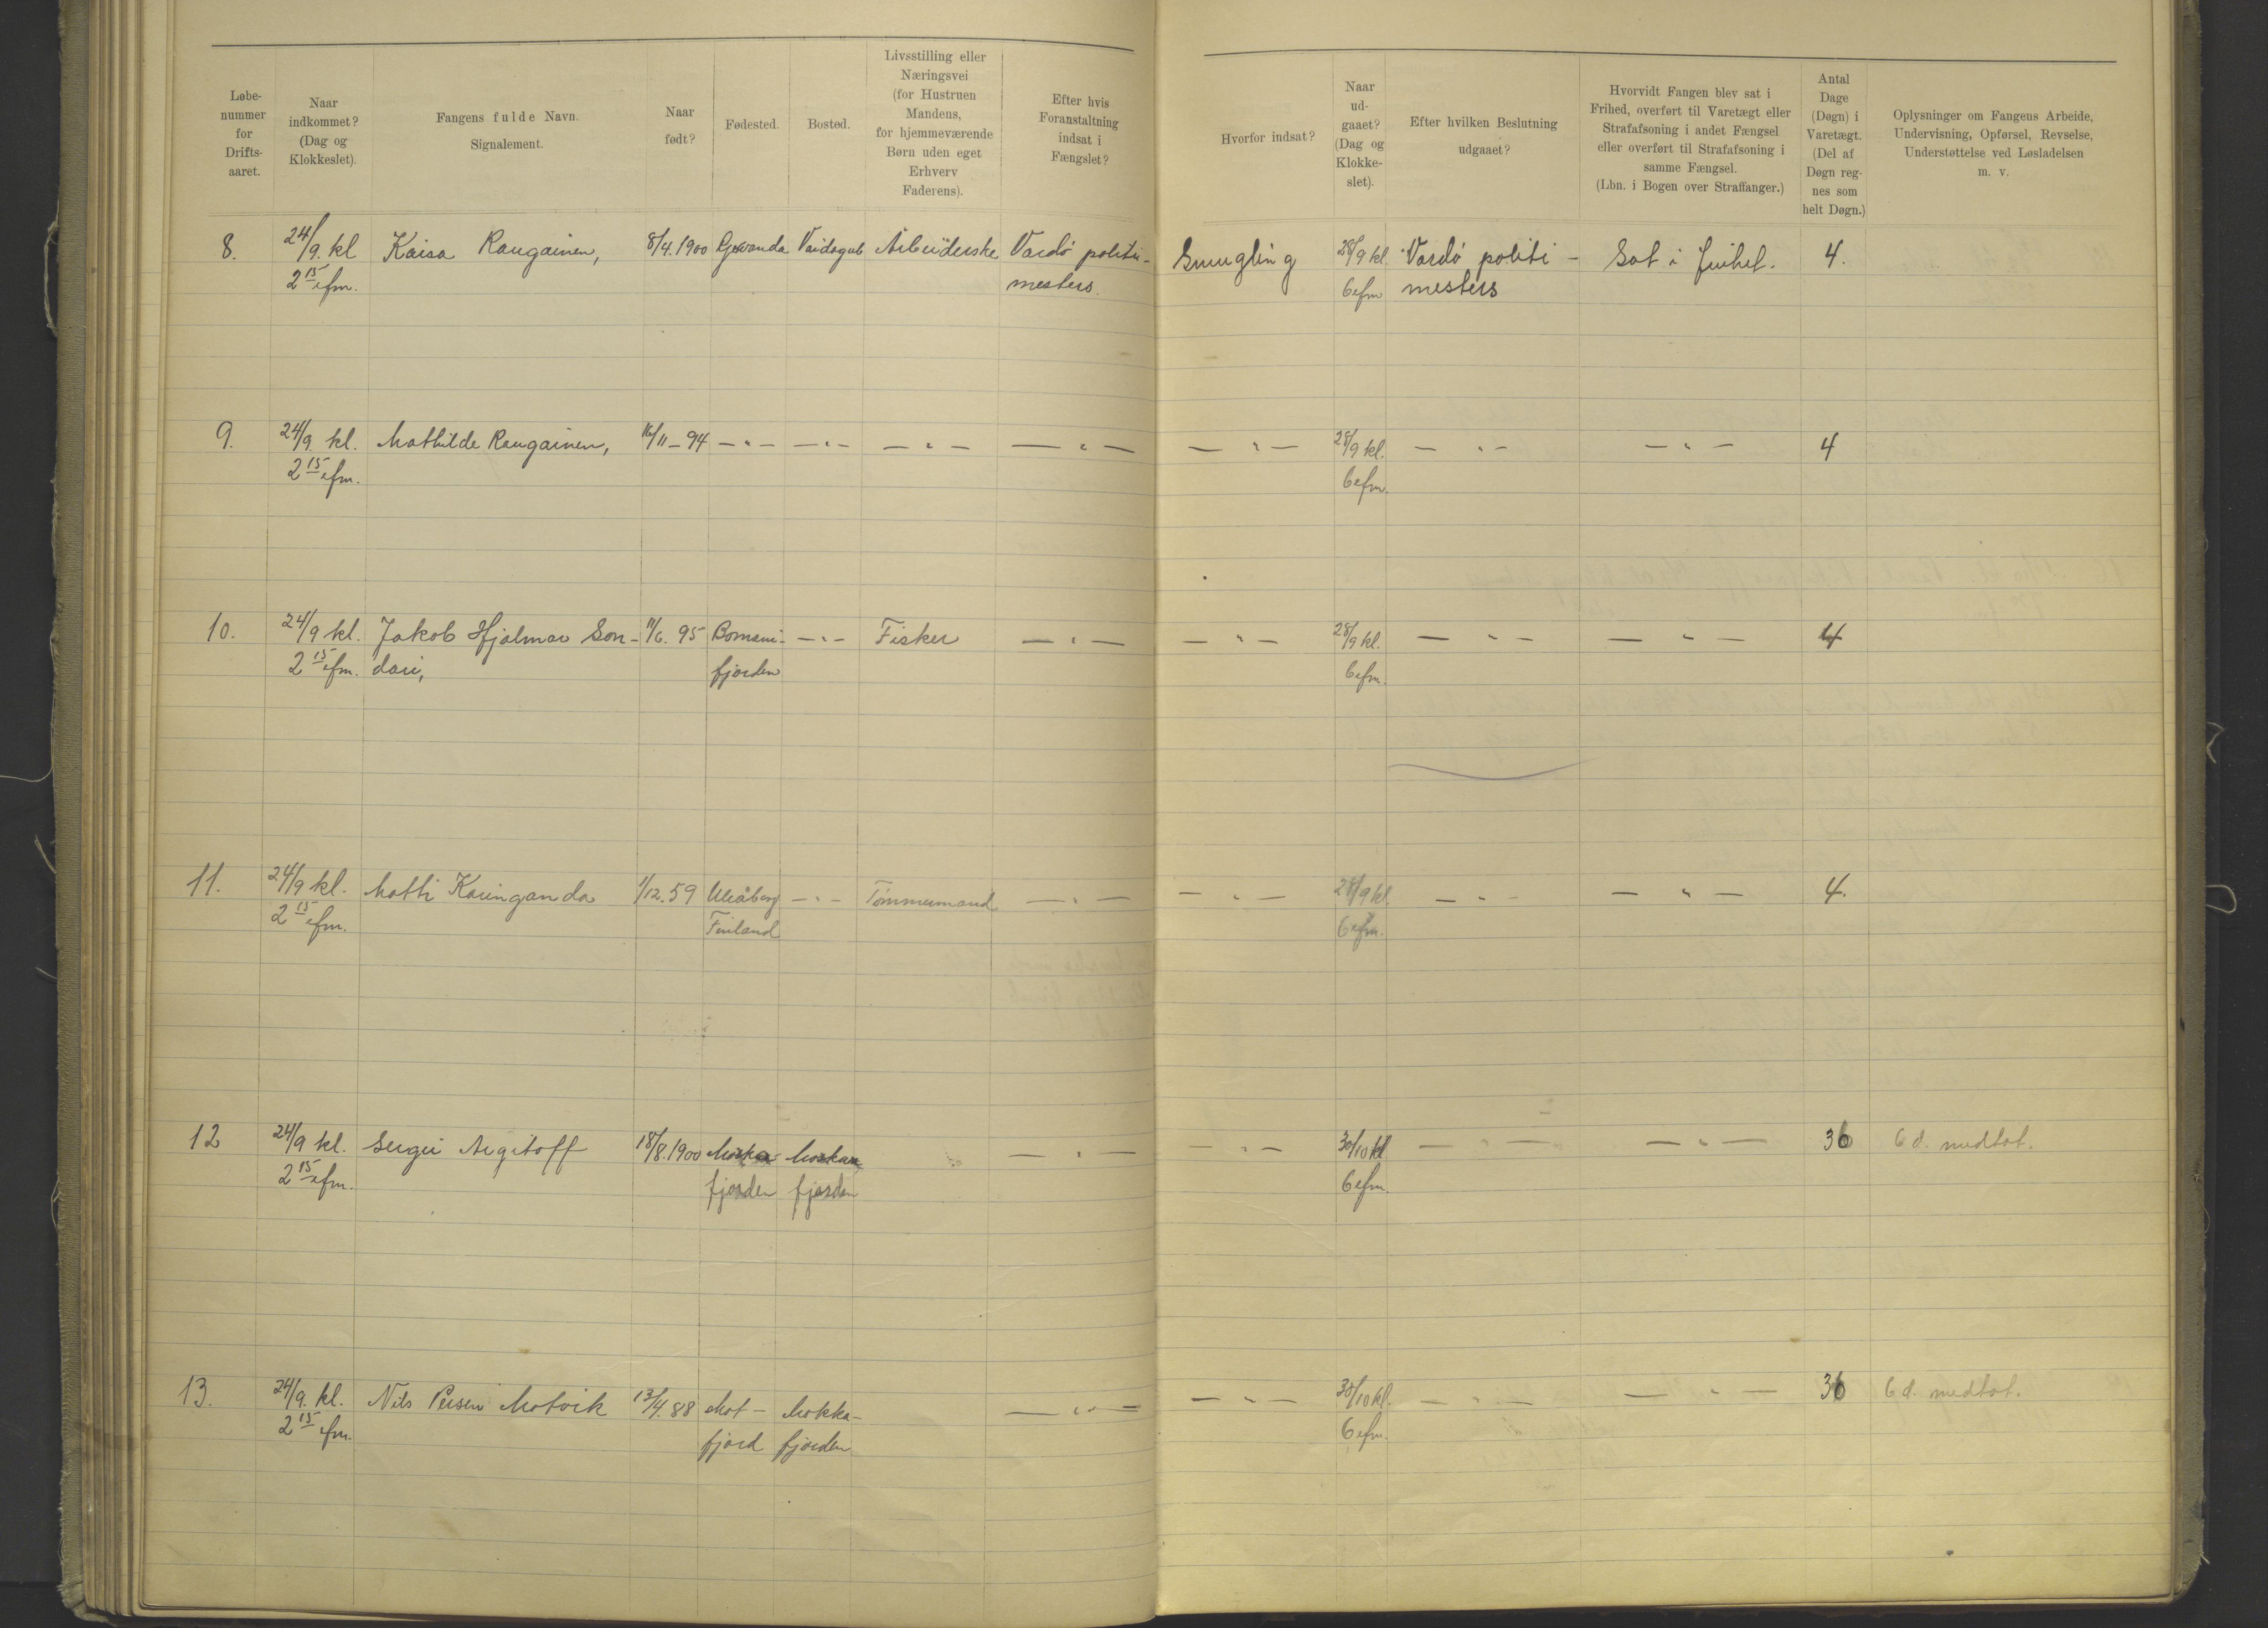 Løbe-
nummer
for
Drifts-
aaret.
Naar
indkommet?
(Dag og
Klokkeslet).
Fangens fulde Navn.
Signalement.
Naar
født?
Fødested.
Bosted.
Livsstilling eller
Næringsvei
(for Hustruen
Mandens,
for hjemmeværende
Børn uden eget
Erhverv
Faderens).
Efter hvis
Foranstaltning
indsat i
Fængslet?
Hvorfor indsat?
Naar
ud-
gaaet?
(Dag og
Klokke-
slet).
Efter hvilken Beslutning
udgaaet?
Hvorvidt Fangen blev sat i
Frihed, overført til Varetægt eller
Strafafsoning i andet Fængsel
eller overført til Strafafsoning i
samme Fængsel.
(Lbn. i Bogen over Straffanger.)
Antal
Dage
(Døgn) i
Varetægt.
(Del af
Døgn reg-
nes som
helt Døgn.)
Oplysninger om Fangens Arbeide,
Undervisning, Opførsel, Revselse,
Understøttelse ved Løsladelsen
m. v.
8. 24/9. kl Kaisa Raugainen, 8/4.1900 Vaidagub Arbeiderske Vardö politi- Smugling 28/9 kl. Vardö politi- Sat i frihet. 4.
2 15 efm. mesters. 6 efm mesters
9. 24/9. kl. Mathilde Raugainen, 16/11-94 —"— —"— —"— —"— —"— 28/9 kl. —"— —"— 4
2 15 efm. 6 efm.
10. 24/9 kl. Jakob Hjalmar Son- 11/6. 95 Bomeni- —"— Fisker —"— —"— 28/9 kl. —"— —"— 4
2 15 efm. dari, fjorden 6 efm.
11. 24/9 kl. Matti Karinganda 1/12.59 Uleåborg —"— Tömmermand —"— —"— 28/9 kl. —"— —"— 4.
2 15 efm. Finland 6 efm.
12 24/9 kl. Sergei Argitoff 18/8.1900 Motka- Motka —"— —"— 30/10 kl —"— —"— 36 6 d. medtat.
2 15 efm. fjorden fjorden 6 efm.
13. 24/9. kl. Nils Persen Motvik 13/4.88 Mot- Mokka- —"— —"— 30/10 kl. —"— —"— 36 6 d. medtat.
2 15 efm. fjord fjorden 6 efm.